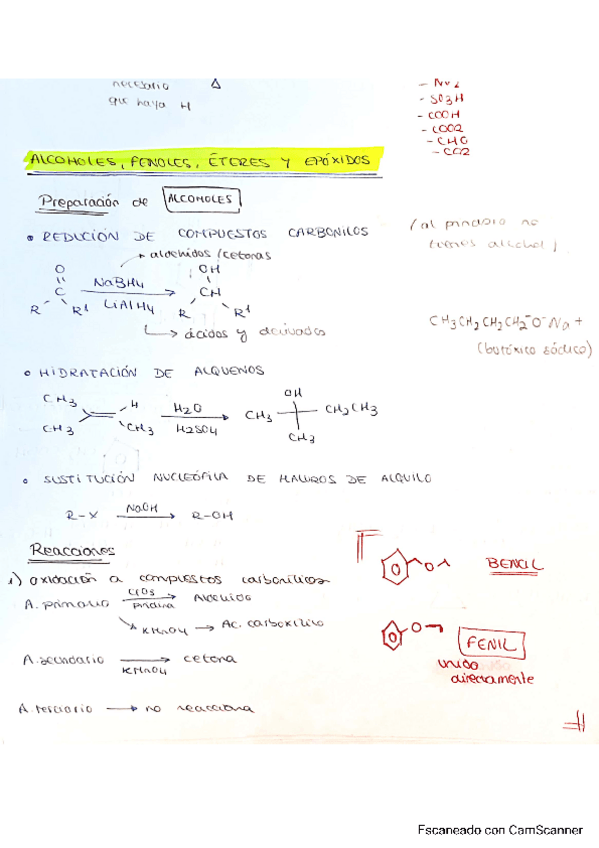 necesario Δ
que haya H
- SO3H
- COOH
- COO2
- CHO
- CO2
ALCOHOLES, FENOLES, ÉTERES Y EPÓXIDOS
Preparación de ALCOHOLES
• REDUCIÓN DE COMPUESTOS CARBONILOS
(al principio no
tienes alcohol)
aldehidos/cetonas
O OH
C NaBH4 CH
R R1 LiAlH4 R R1
ácidos y derivados
CH3CH2CH2CH2-O-Na+
(butóxico sódico)
• HIDRATACIÓN DE ALQUENOS
CH3 H H2O OH
CH3 CH2CH3
CH3 CH3 H2SO4 CH3
• SUSTITUCIÓN NUCLEÓFILA DE HALUROS DE ALQUILO
R-X NaOH → R-OH
Reacciones
1) oxidación a compuestos carbonílicos
A. primario CrO3 piridina Aldehido
KMnO4 → Ac. carboxílico
A. secundario KMnO4 cetona
A. terciario → no reacciona
O BENCIL
O FENIL
unido
directamente
Escaneado con CamScanner